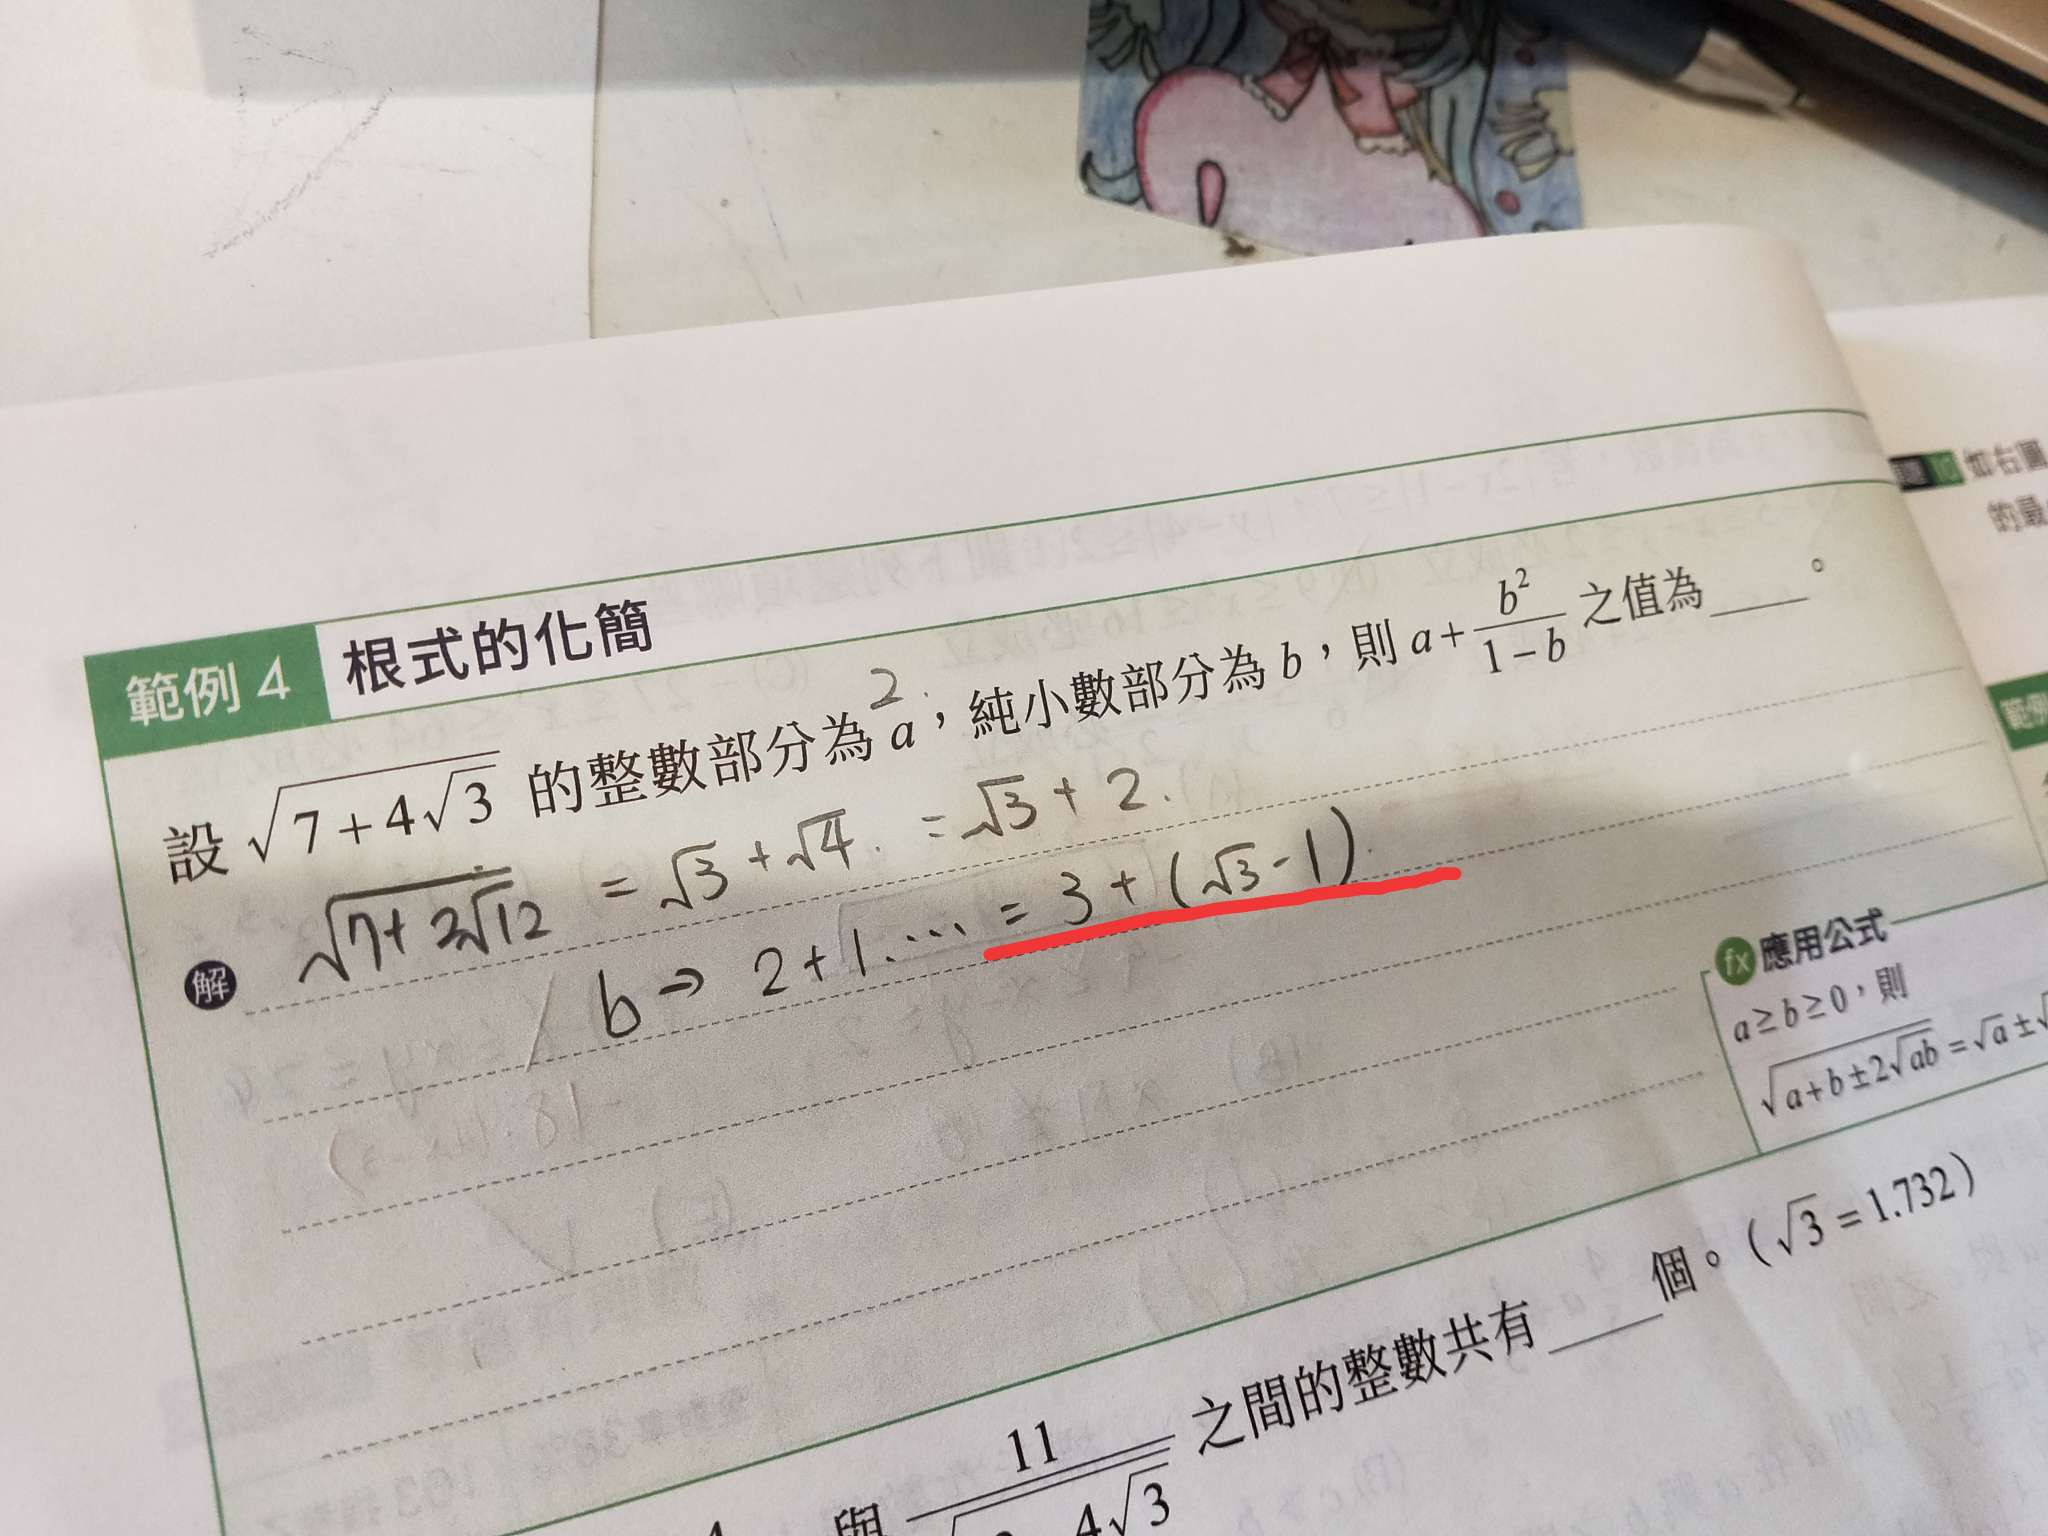 範例 4 根式的化簡
設 √(7+4√3) 的整數部分為 a,純小數部分為 b,則 a + b²/(1−b) 之值為____。
2
解 √(7+2√12) = √3 + √4 = √3 + 2.
b → 2 + 1.… = 3 + (√3 - 1).
fx 應用公式
a ≥ b ≥ 0,則
√(a+b±2√ab) = √a ±
與 11 4√3 之間的整數共有____個。(√3 = 1.732)
如右圖
的最
範例